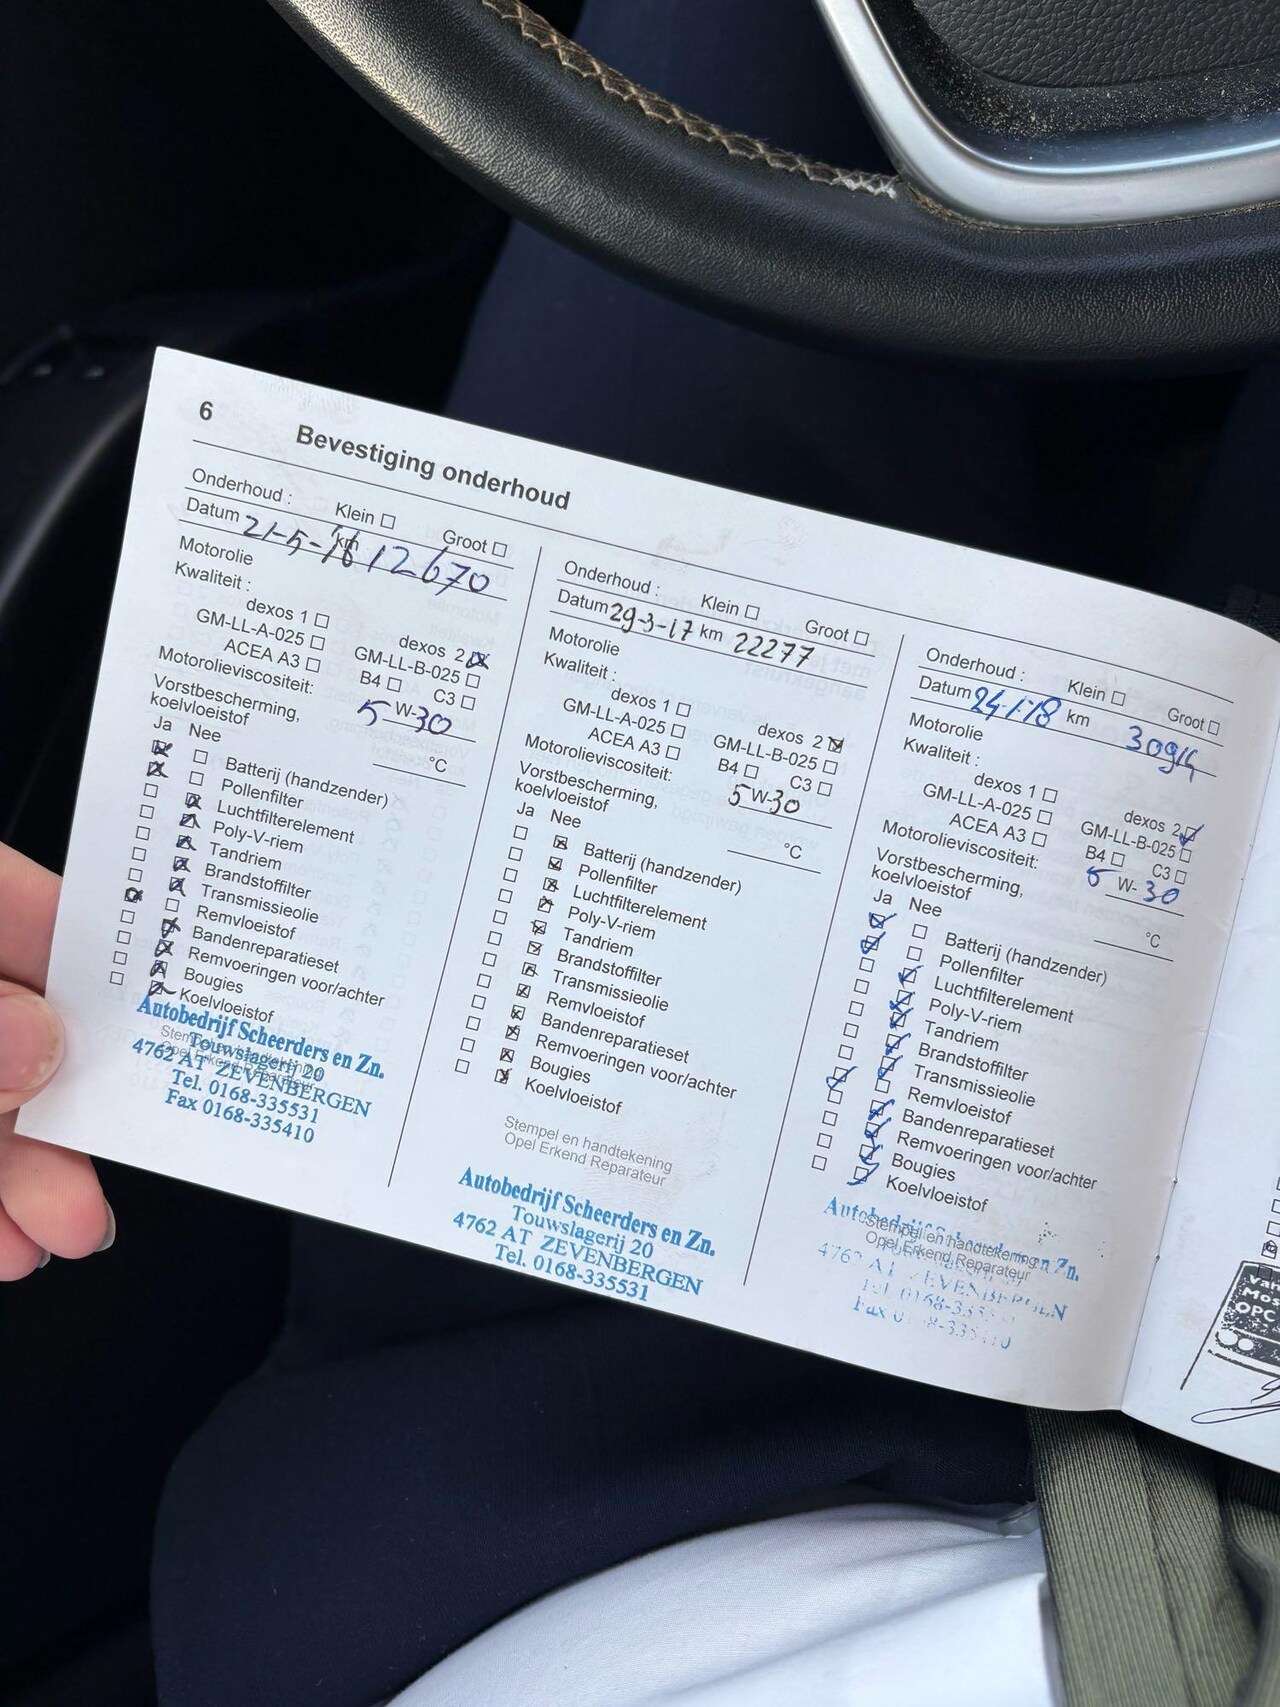 6
Bevestiging onderhoud
Onderhoud : Klein Groot
Datum 21-5-16 km 12670
Motorolie
Kwaliteit :
dexos 1 dexos 2
GM-LL-A-025 GM-LL-B-025
ACEA A3 B4 C3
Motorolieviscositeit: 5 W-30
Vorstbescherming,
koelvloeistof °C
Ja Nee
Batterij (handzender)
Pollenfilter
Luchtfilterelement
Poly-V-riem
Tandriem
Brandstoffilter
Transmissieolie
Remvloeistof
Bandenreparatieset
Remvoeringen voor/achter
Bougies
Koelvloeistof
Stempel en handtekening
Opel Erkend Reparateur
Autobedrijf Scheerders en Zn.
Touwslagerij 20
4762 AT ZEVENBERGEN
Tel. 0168-335531
Fax 0168-335410
Onderhoud : Klein Groot
Datum 29-3-17 km 22277
Motorolie
Kwaliteit :
dexos 1 dexos 2
GM-LL-A-025 GM-LL-B-025
ACEA A3 B4 C3
Motorolieviscositeit: 5 W-30
Vorstbescherming,
koelvloeistof °C
Ja Nee
Batterij (handzender)
Pollenfilter
Luchtfilterelement
Poly-V-riem
Tandriem
Brandstoffilter
Transmissieolie
Remvloeistof
Bandenreparatieset
Remvoeringen voor/achter
Bougies
Koelvloeistof
Stempel en handtekening
Opel Erkend Reparateur
Autobedrijf Scheerders en Zn.
Touwslagerij 20
4762 AT ZEVENBERGEN
Tel. 0168-335531
Onderhoud : Klein Groot
Datum 24-1-18 km
Motorolie
Kwaliteit :
dexos 1 dexos 2
GM-LL-A-025 GM-LL-B-025
ACEA A3 B4 C3
Motorolieviscositeit: 5 W-30
Vorstbescherming,
koelvloeistof °C
Ja Nee
Batterij (handzender)
Pollenfilter
Luchtfilterelement
Poly-V-riem
Tandriem
Brandstoffilter
Transmissieolie
Remvloeistof
Bandenreparatieset
Remvoeringen voor/achter
Bougies
Koelvloeistof
Stempel en handtekening
Opel Erkend Reparateur
Autobedrijf en Zn.
4762 AT ZEVENBERGEN
OPC